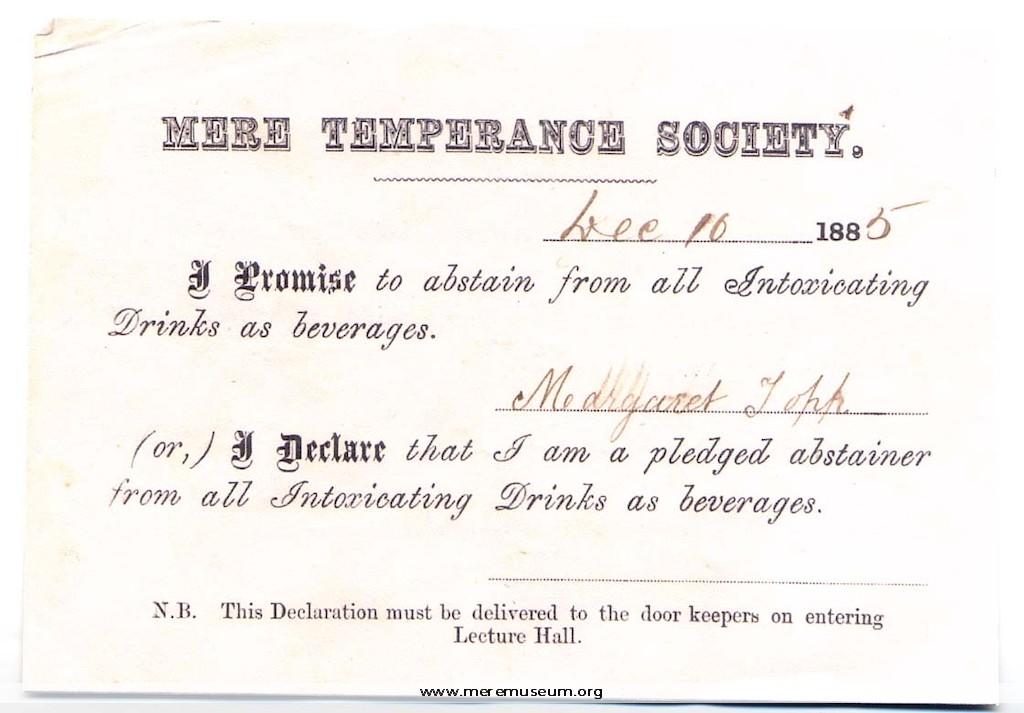 MERE TEMPERANCE SOCIETY.
Dec 16 1885
I Promise to abstain from all Intoxicating
Drinks as beverages.
Margaret Topp
(or,) I Declare that I am a pledged abstainer
from all Intoxicating Drinks as beverages.
N.B. This Declaration must be delivered to the door keepers on entering
Lecture Hall.
www.meremuseum.org